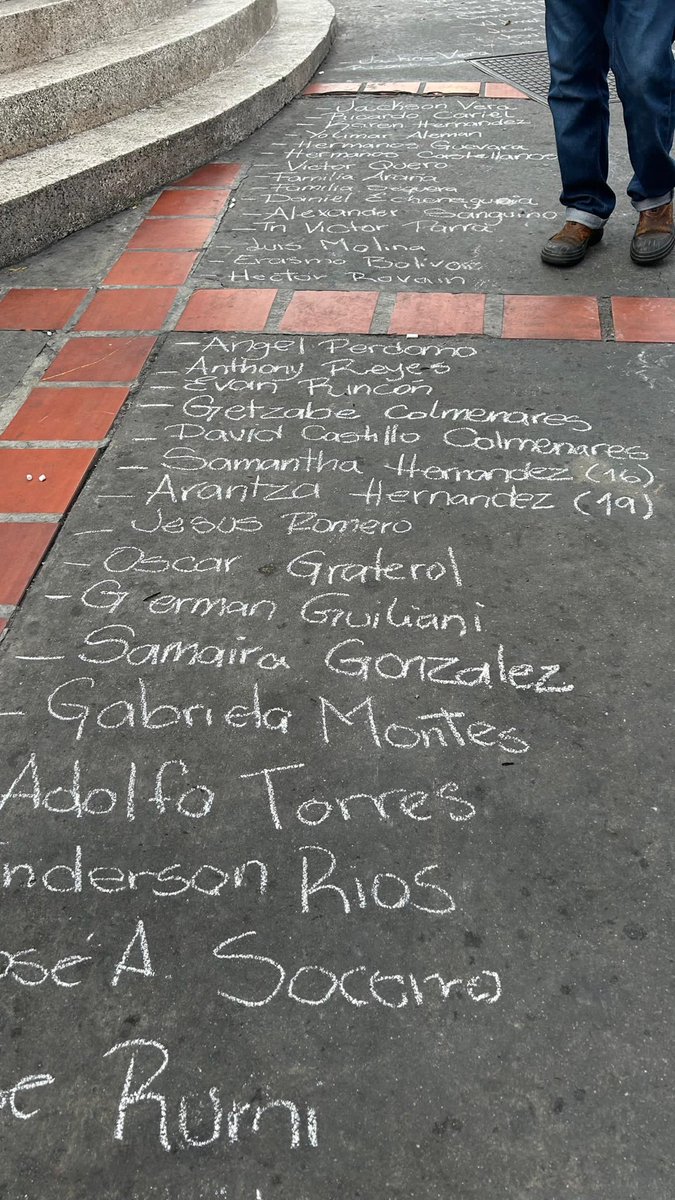 Jackson Vera
- Ricardo Cariel
- Karen Hernandez
- Yocimar Aleman
- Hermanos Guevara
- Hermanos Castellanos
Victor Quero
- Familia Arana
- Familia Seguera
- Daniel Echenagucia
- Alexander Sanguino
- Tn Victor Parra
Luis Molina
- Erasmo Bolivar
Hector Rovain
- Angel Perdomo
- Anthony Reyes
- Evan Rincón
- Getzabe Colmenares
- David Castillo Colmenares
- Samantha Hernandez (16)
- Arantza Hernandez (19)
- Jesus Romero
- Oscar Graterol
- German Guiliani
- Samaira Gonzalez
- Gabriela Montes
Adolfo Torres
Enderson Rios
José A Socorro
Rumi